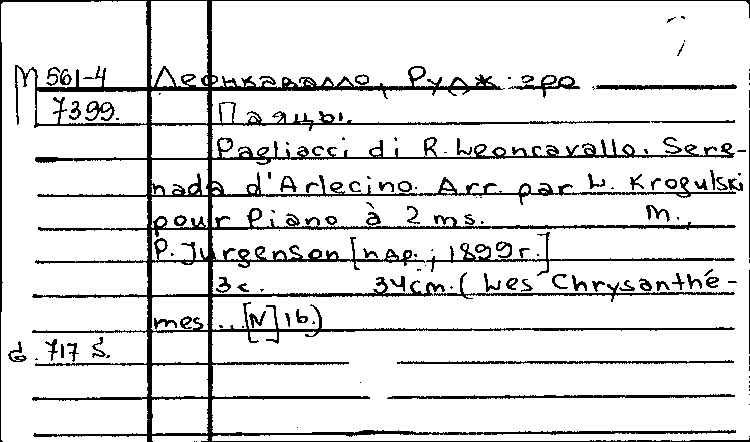 М 561-4 Леонкавалло, Руджеро
7399. Паяцы.
Pagliacci di R. Leoncavallo. Sere-
nada d'Arlecino. Arr. par L. Krogulski
pour Piano à 2 ms. М.,
P. Jurgenson [ценз., 1899 г.]
3 с. 34 cm. (Les Chrysanthé-
mes ... [N] 16.)
717